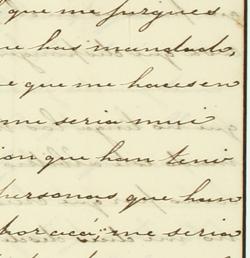 que me juzgues
que has mandado,
e que me hacesen
me seria mui
ion que han teni
personas que han
por acá, me seria